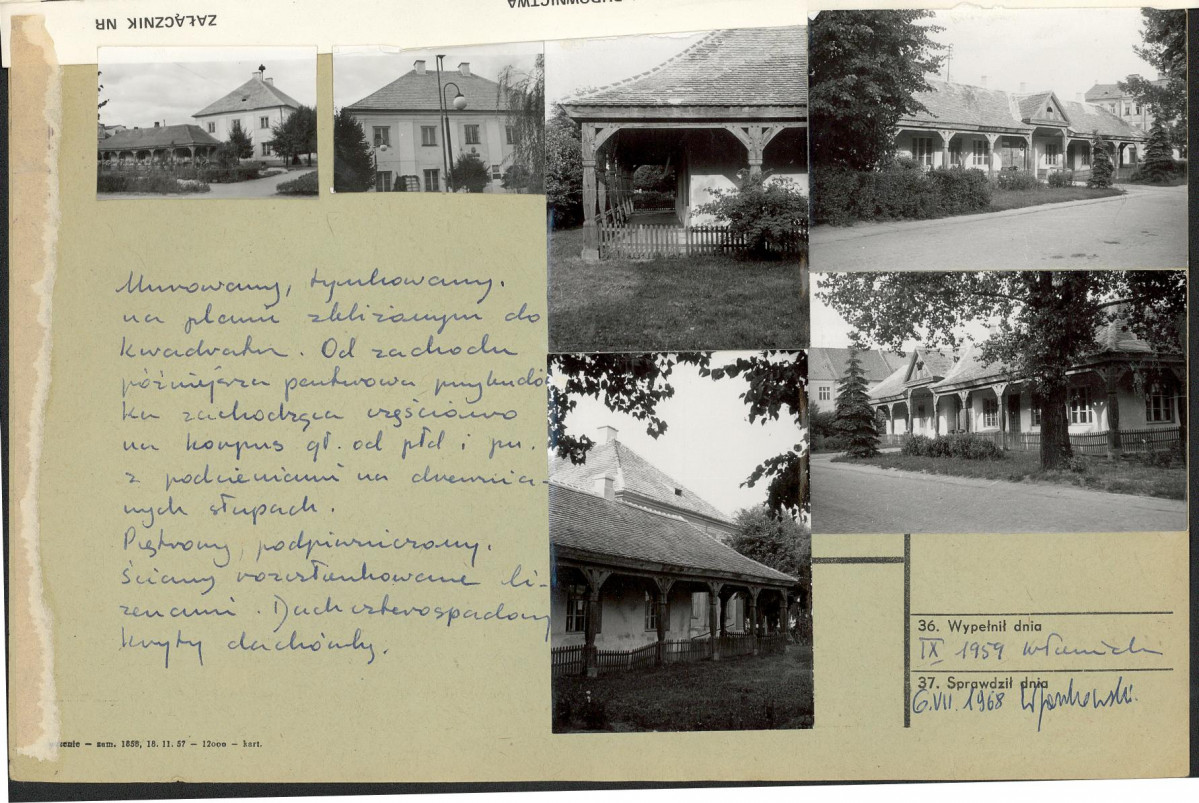 ZAŁĄCZNIK NR
BUDOWNICTWA
Murowany, tynkowany.
na planie zbliżonym do
kwadratu. Od zachodu
późniejsza parterowa przybudó
ka zachodząca częściowo
na korpus gł. od płd i pn.
z podcieniami na drewnia-
nych słupach.
Piętrowy, podpiwniczony.
Ściany rozczłonkowane li-
zenami. Dach czterospadowy
kryty dachówką.
36. Wypełnił dnia
IX 1959
37. Sprawdził dnia
6.VII.1968
zam. 1858, 18. 11. 57 — 12000 — kart.